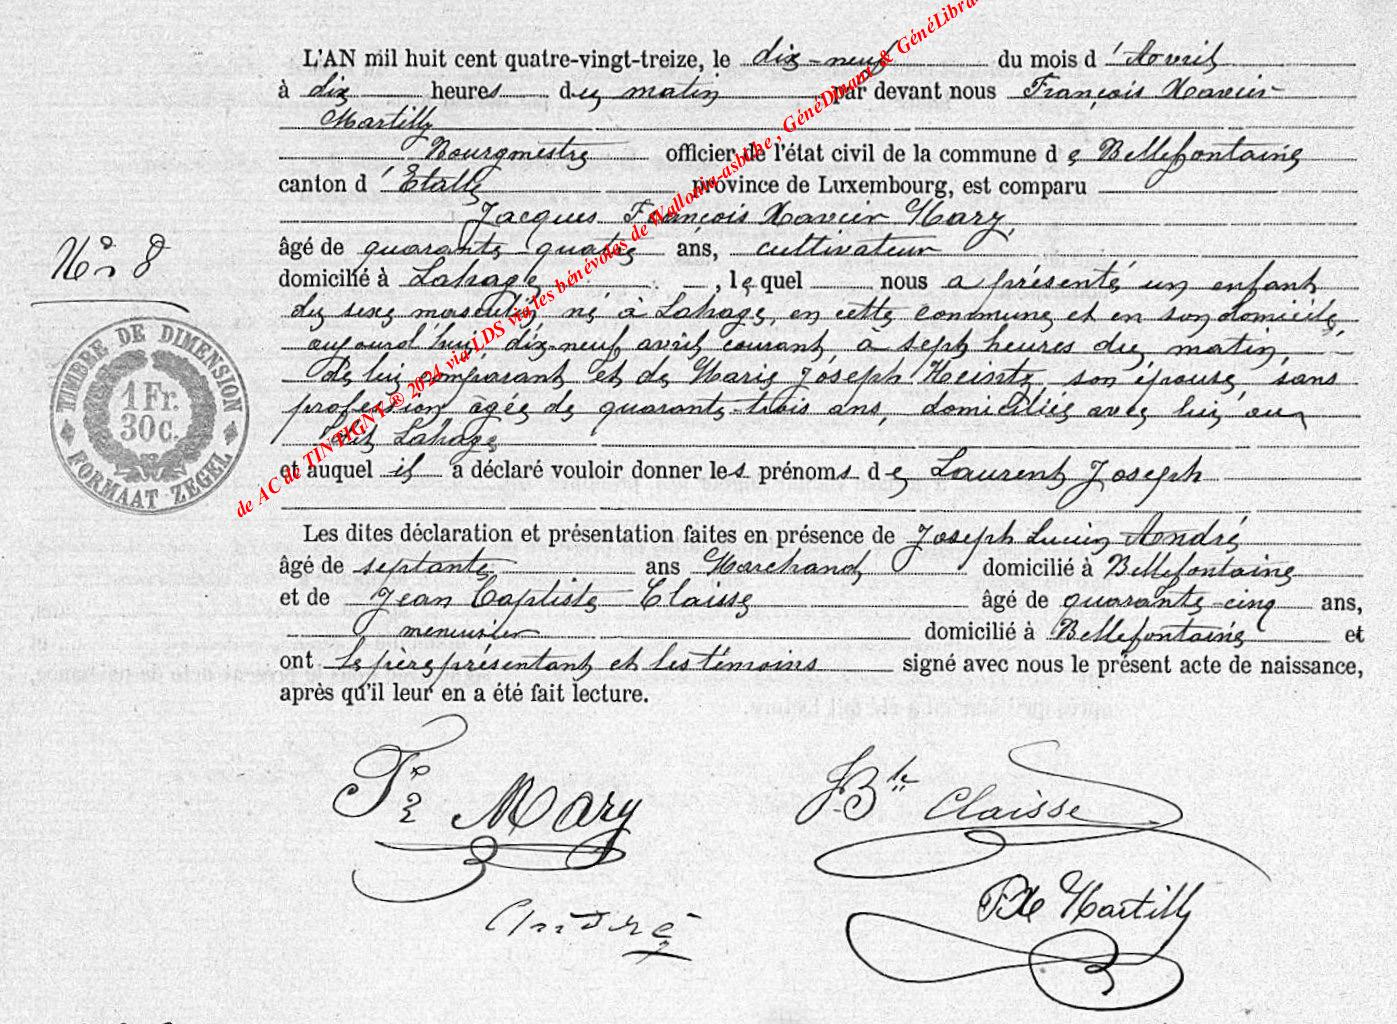 L'AN mil huit cent quatre-vingt-treize, le dix-neuf du mois d'Avril
à dix heures du matin par devant nous François Xavier
Martilly
Bourgmestre officier de l'état civil de la commune de Bellefontaine
canton d'Etalle province de Luxembourg, est comparu
Jacques François Xavier Mary,
âgé de quarante quatre ans, cultivateur
N° 8
domicilié à Lahage, lequel nous a présenté un enfant
du sexe masculin né à Lahage, en cette commune et en son domicile,
aujourd'hui, dix-neuf avril courant, à sept heures du matin,
de lui comparant et de Marie Joseph Heintz, son épouse, sans
profession, âgée de quarante-trois ans, domiciliée avec lui au
dit Lahage
et auquel il a déclaré vouloir donner les prénoms de Laurent Joseph
Les dites déclaration et présentation faites en présence de Joseph Lucien André
âgé de septante ans Marchand domicilié à Bellefontaine
et de Jean Baptiste Claisse âgé de quarante-cinq ans,
menuisier domicilié à Bellefontaine et
ont le père présentant et les témoins signé avec nous le présent acte de naissance,
après qu'il leur en a été fait lecture.
TIMBRE DE DIMENSION
1 Fr.
30 c.
FORMAAT ZEGEL
Mary
J-Bte Claisse
André
FX Martilly
de AC de TINTIGNY ® 2024 via LDS via les bénévoles de Wallonia-asbl.be , GénéDinant & GénéLibra